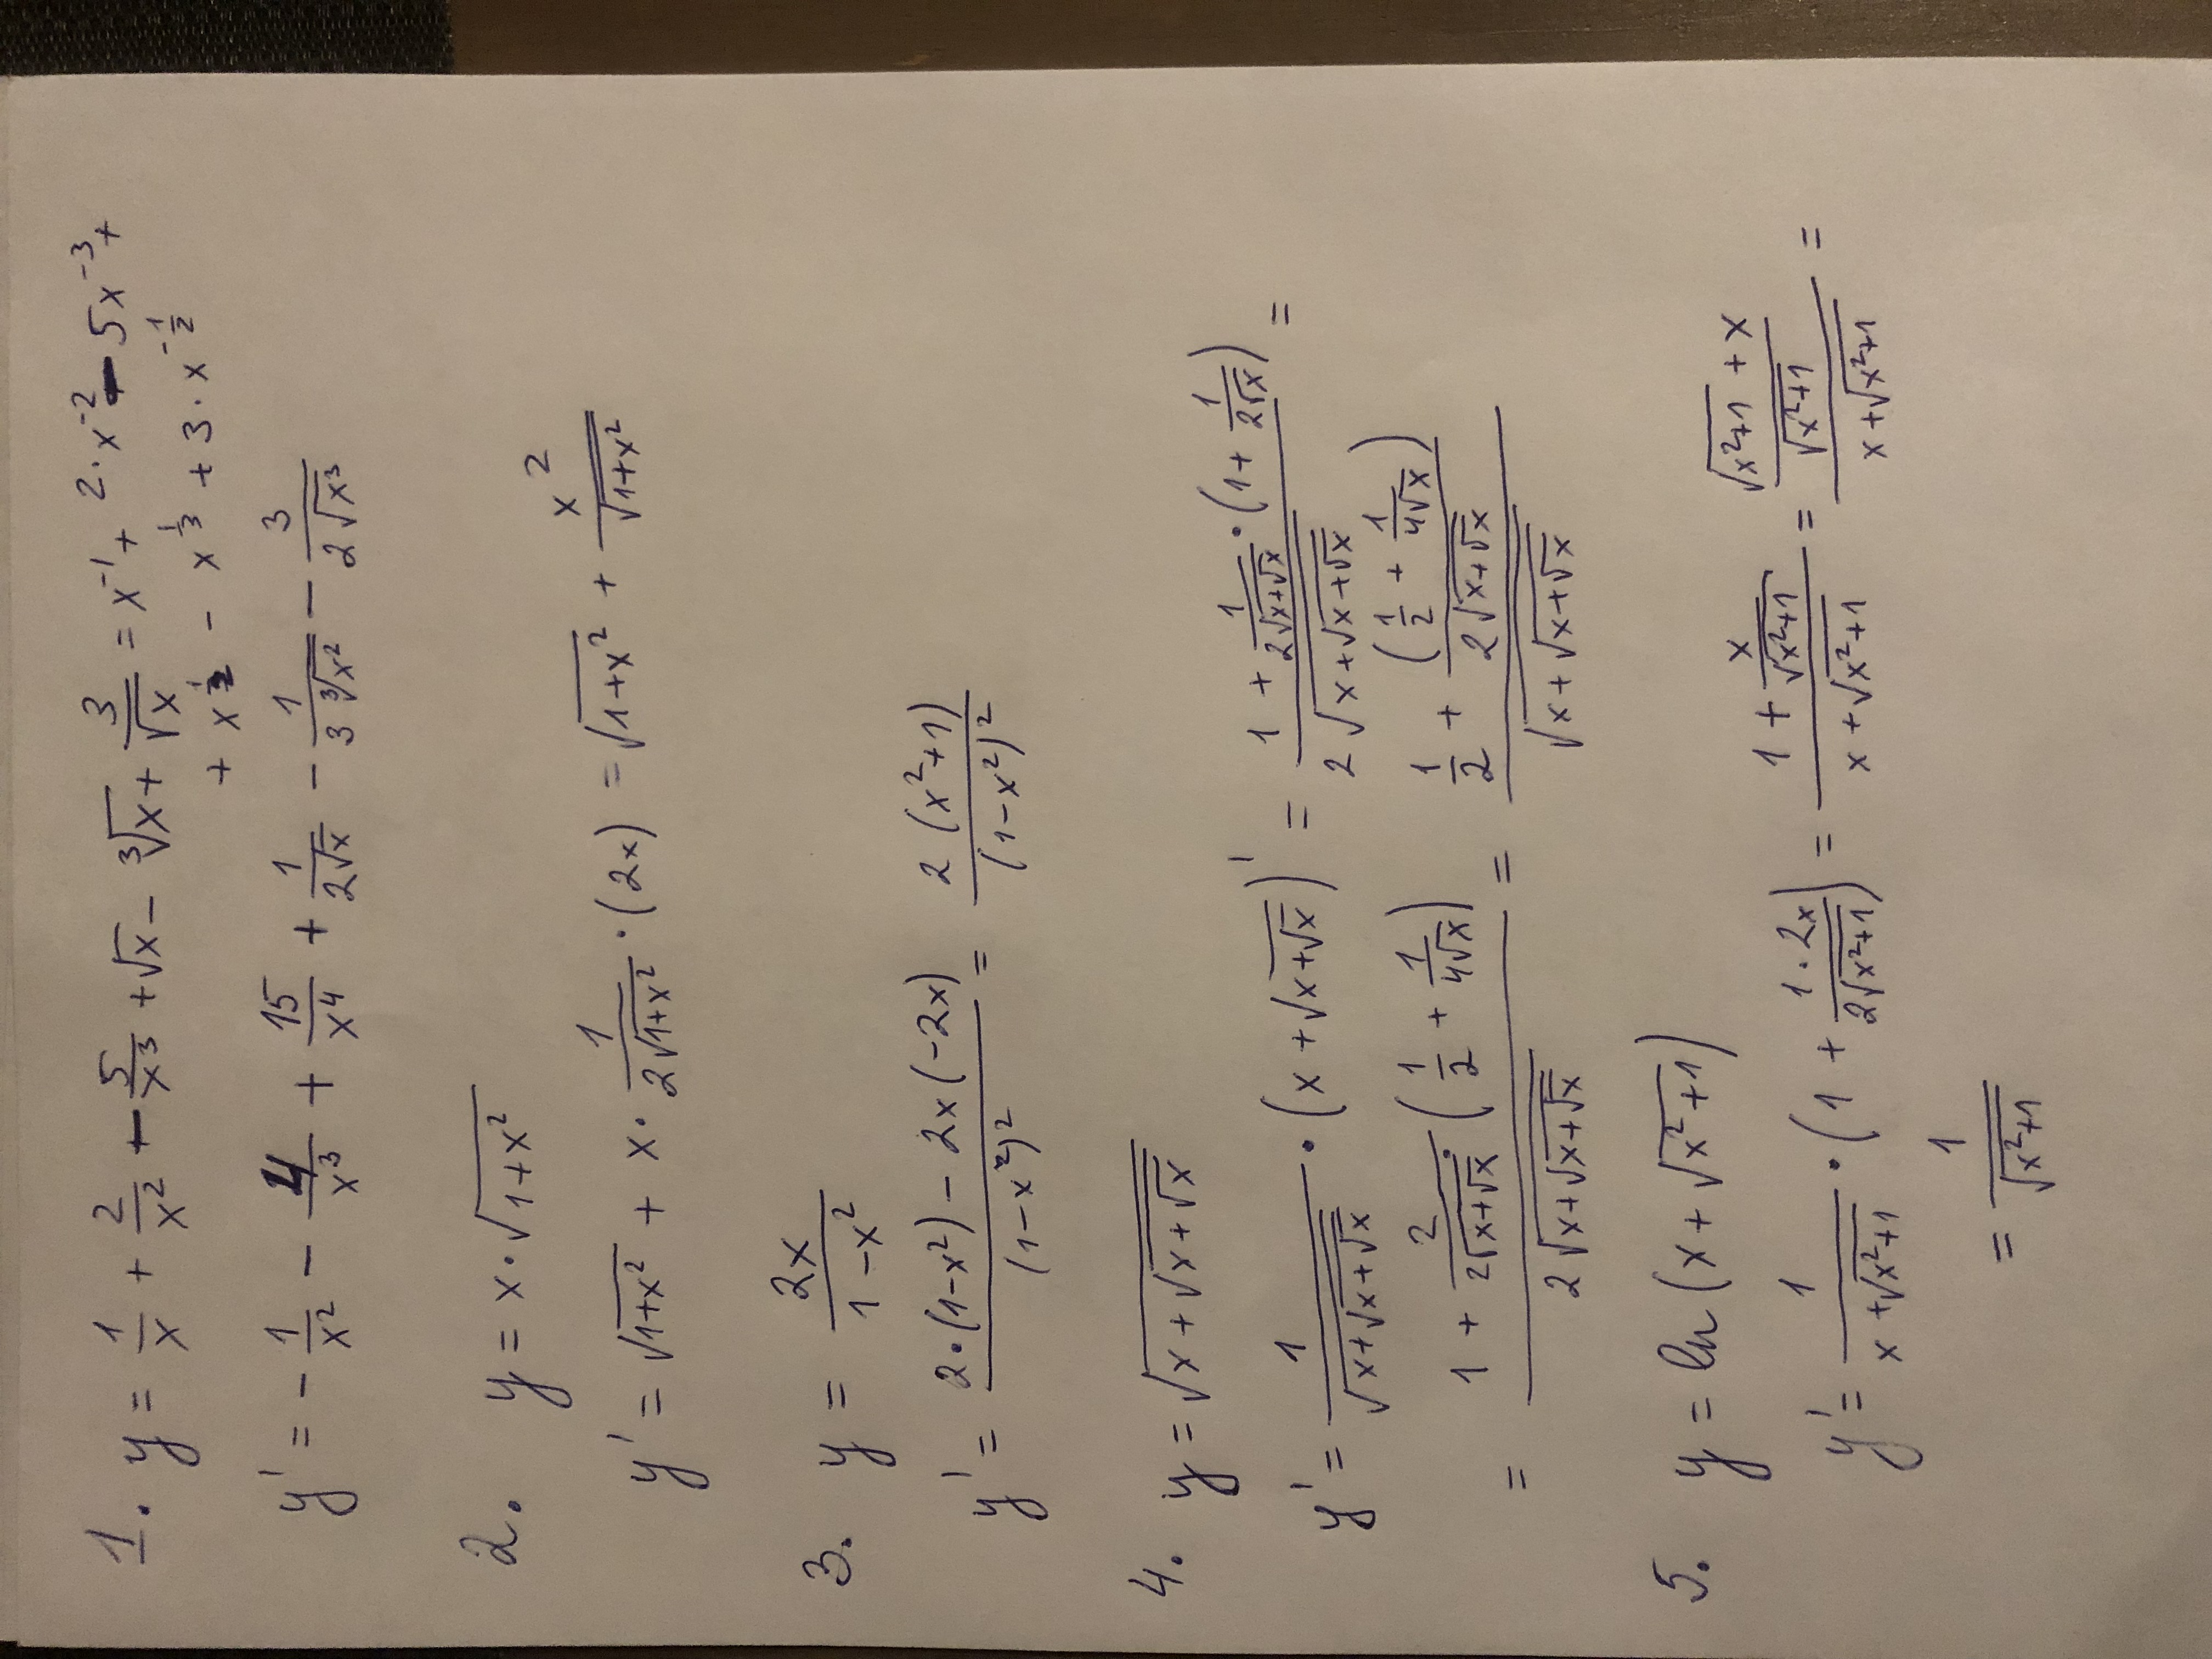 1. y = 1/x + 2/x² - 5/x³ + √x - ∛x + 3/√x = x⁻¹ + 2·x⁻² - 5x⁻³ +
+ x^(1/2) - x^(1/3) + 3·x^(-1/2)
y' = -1/x² - 4/x³ + 15/x⁴ + 1/(2√x) - 1/(3∛(x²)) - 3/(2√(x³))
2. y = x·√(1+x²)
y' = √(1+x²) + x·1/(2√(1+x²))·(2x) = √(1+x²) + x²/√(1+x²)
3. y = 2x/(1-x²)
y' = (2·(1-x²) - 2x(-2x))/(1-x²)² = 2(x²+1)/(1-x²)²
4. y = √(x+√(x+√x))
y' = 1/√(x+√(x+√x)) · (x+√(x+√x))' = (1 + 1/(2√(x+√x))·(1+1/(2√x)))/(2√(x+√(x+√x))) =
= (1 + 2/(2√(x+√x))·(1/2 + 1/(4√x)))/(2√(x+√(x+√x))) = (1/2 + (1/2 + 1/(4√x))/(2√(x+√x)))/√(x+√(x+√x))
5. y = ln(x+√(x²+1))
y' = 1/(x+√(x²+1)) · (1 + 1·2x/(2√(x²+1))) = (1 + x/√(x²+1))/(x+√(x²+1)) = ((√(x²+1)+x)/√(x²+1))/(x+√(x²+1)) =
= 1/√(x²+1)